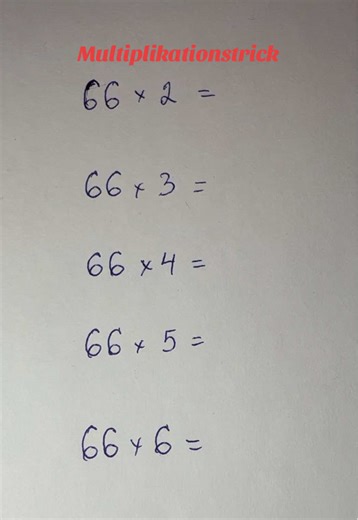 Multiplikationstrick
66 × 2 =
66 × 3 =
66 × 4 =
66 × 5 =
66 × 6 =